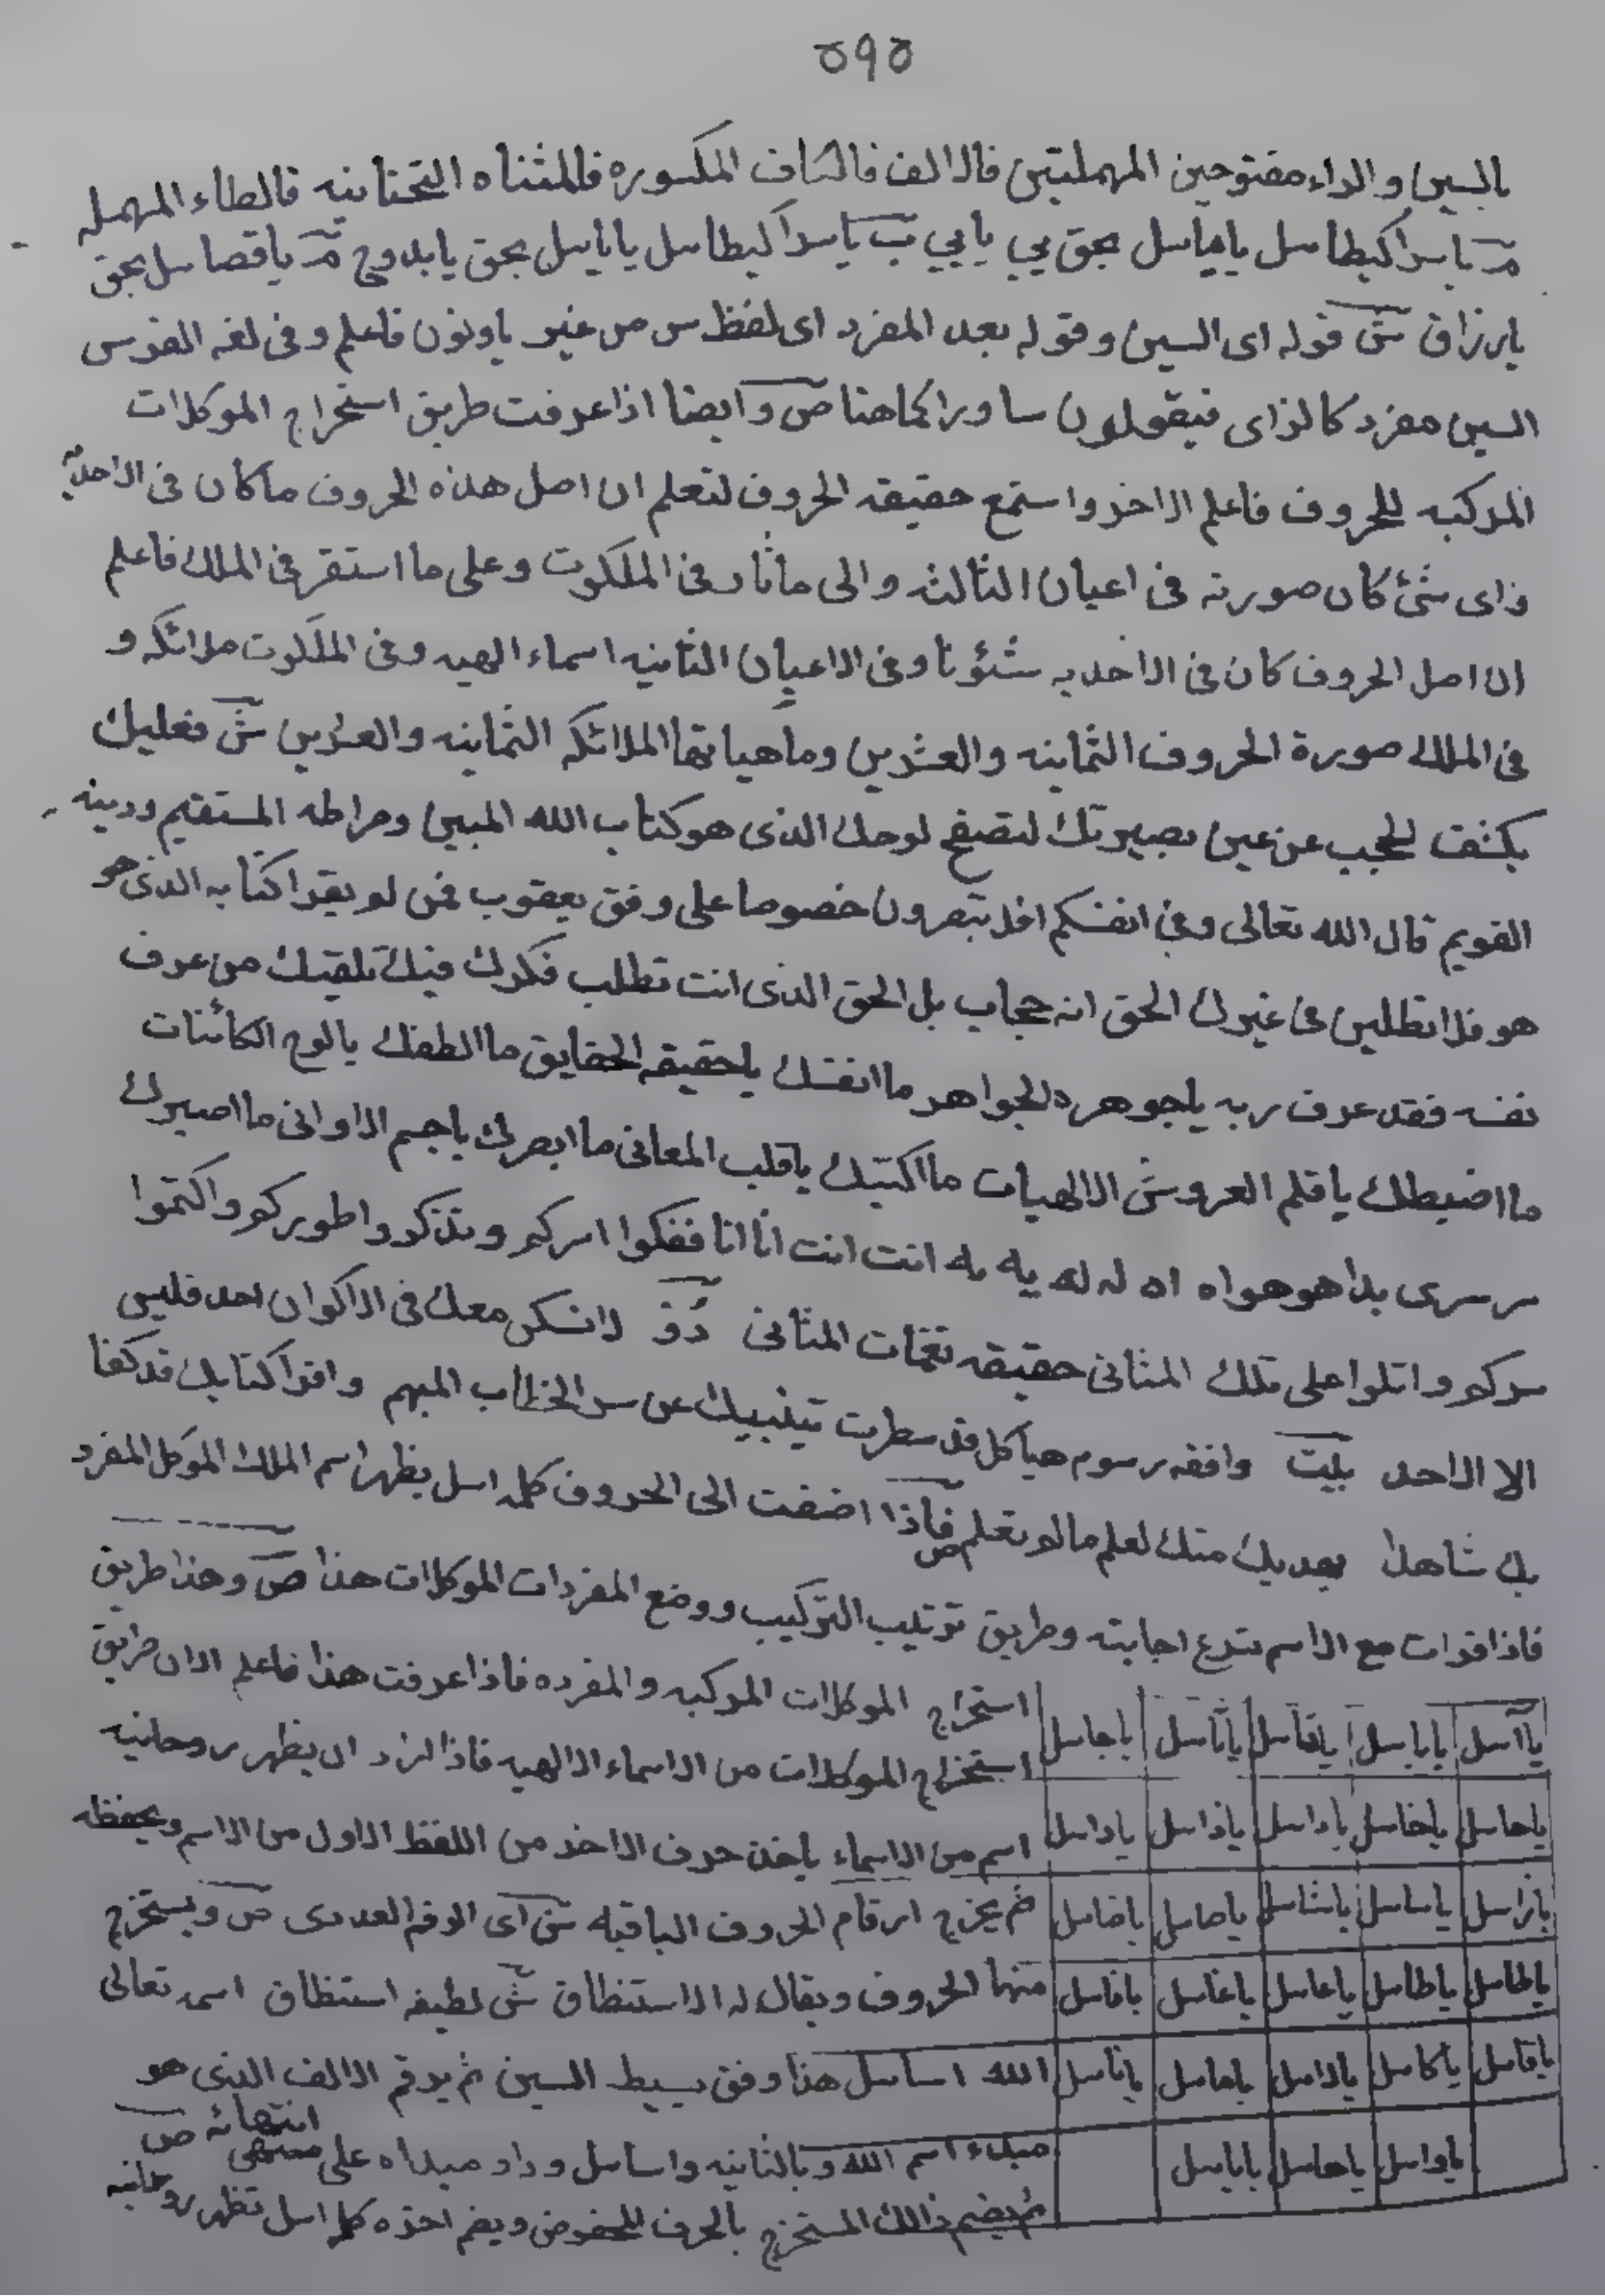 ٥٩٥
بالسين والراء مفتوحين المهملتين فالالف فالكاف المكسوره فالمثناه التحتانيه فالطاء المهمله
يا سراكيطاسل ياياسل بحق يي يا يي ب ياسراكيطاسل ياباسل بحق يا بدوح يا قصاسل بحق
يا رزاق ش قوله اى السين وقوله بعد المفرد اى لفظ س من غير يا ونون فاعلم وفى لغه الفرس
السين مفرد كالزاى فيقولون سا ورا كما هنا ص وايضا اذا عرفت طريق استخراج الموكلات
المركبه للحروف فاعلم الاخر واستمع حقيقه الحروف لتعلم ان اصل هذه الحروف ما كان فى الاحديه
واى شئ كان صورته فى اعيان الثالثه والى ما ثار فى الملكوت وعلى ما استقر فى الملك فاعلم
ان اصل الحروف كان فى الاحديه شئونا وفى الاعيان الثانيه اسماء الهيه وفى الملكوت ملائكه و
فى الملك صورة الحروف الثمانيه والعشرين وماهياتها الملائكه الثمانيه والعشرين ش فعليك
بكشف الحجب عن عين بصيرتك لتصفح لوحك الذى هو كتاب الله المبين وصراطه المستقيم ودينه
القويم قال الله تعالى وفى انفسكم افلا تبصرون خصوصا على وفق يعقوب فمن لو يقرا كتابه الذى هو
هو فلا تطلبن فى غيرك الحق انه حجاب بل الحق الذى انت تطلب فكرك فيك تلقيك من عرف
نفسه فقد عرف ربه يا جوهره الجواهر ما انفسك يا حقيقه الحقايق ما الطفك يا لوح الكائنات
ما اضبطك يا قلم العروش الالهيات ما اكتبك يا قلب المعانى ما ابصرك يا جسم الاوانى ما اصبرك
سر سرى بدا هو هو اه اه له له به به انت انت انا انا ففكوا اسركم وتذكروا طوركم واكتموا
سركم واتلوا على تلك المثانى حقيقه نغمات المثانى لا تسكن معك فى الاكوان احد فليس
الا الاحد بيت وافقه رسوم هياكل قد سطرت تنبيك عن سر الخطاب المبهم واقرا كتابك قد كفا
بك شاهدا يهديك منك لعلم ما لم تعلم ص فاذا اضفت الى الحروف كلمه اسل يظهر اسم الملك الموكل المفرد
فاذا قرات مع الاسم تسرع اجابته وطريق ترتيب التركيب ووضع المفردات الموكلات هذا ص وهذا طريق
استخراج الموكلات المركبه والمفرده فاذا عرفت هذا فاعلم الان طريق
استخراج الموكلات من الاسماء الالهيه فاذا اراد ان يظهر روحانيه
اسم من الاسماء ياخذ حرف الاخر من اللفظ الاول من الاسم ويحفظه
ثم يخرج ارقام الحروف الباقيه ش اى الوفم العددى ص ويستخرج
منها الحروف ويقال له الاستنطاق ش لطيفه استنطاق اسمه تعالى
الله اساسل هذا وفق بسيط السين ثم يرقم الالف الذى هو
مبداء اسم الله وبالثانيه واساسل وداد مبداه على منتهى انتهائه ص
ثم يضم ذالك المستخرج بالحرف المحفوض ويضم اخره كلمه اسل تظهر روحانيه
ياآسل ياباسل ياتاسل ياثاسل ياجاسل
ياحاسل ياخاسل ياداسل ياذاسل ياراسل
يازاسل ياساسل ياشاسل ياصاسل ياضاسل
ياطاسل ياظاسل ياعاسل ياغاسل يافاسل
ياقاسل ياكاسل يالاسل ياماسل ياناسل
ياواسل ياهاسل ياياسل